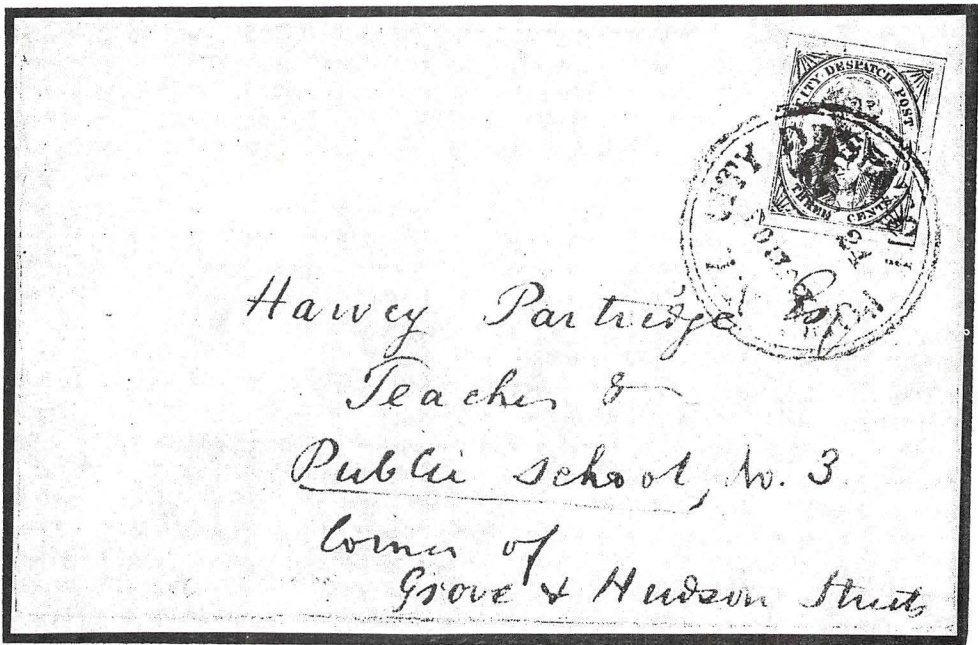 CITY DESPATCH POST
THREE CENTS
CITY
Harvey Partridge Esq
Teacher &
Public School, No. 3
Corner of
Grove & Hudson Streets